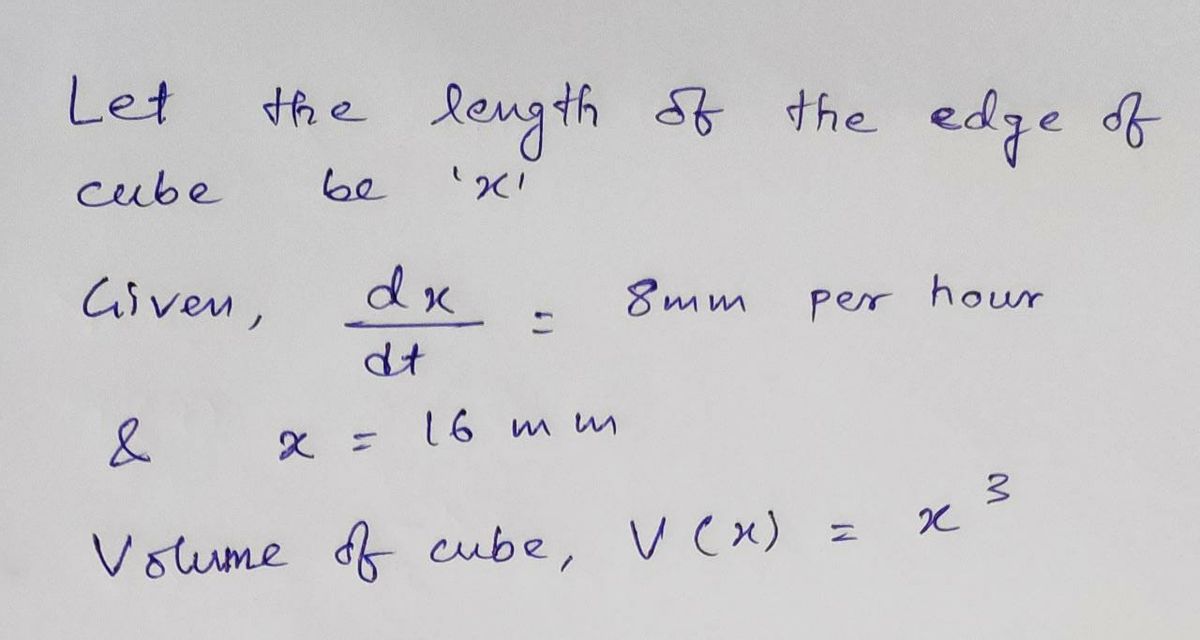 Let the length of the edge of
cube be 'x'
Given, dx/dt = 8mm per hour
& x = 16 mm
Volume of cube, V(x) = x³